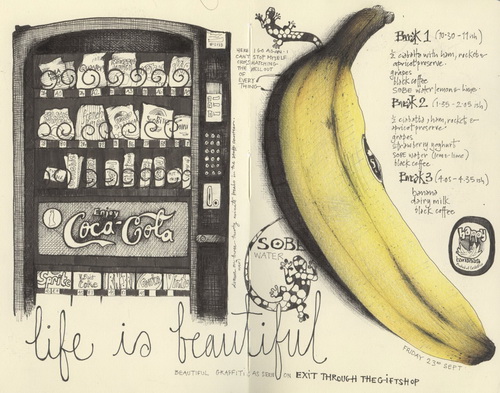 HERE I GO AGAIN - I
CAN'T STOP MYSELF
CROSSHATCHING
THE HELL OUT
OF
EVERY
THING!
Enjoy
Coca-Cola
Sprite
Diet
Coke
SOBE
WATER
Break 1 (10:30-11ish)
½ ciabatta with ham, rocket &
apricot preserve
grapes
black coffee
SOBE water lemons & lime
Break 2 (1:35-2:05ish)
½ ciabatta, ham, rocket &
apricot preserve
grapes
strawberry yoghurt
sobe water (lemon-lime)
black coffee
Break 3 (4:05-4:35ish)
banana
dairy milk
black coffee
life is beautiful
FRIDAY 23rd SEPT
BEAUTIFUL GRAFFITI AS SEEN ON EXIT THROUGH THE GIFTSHOP